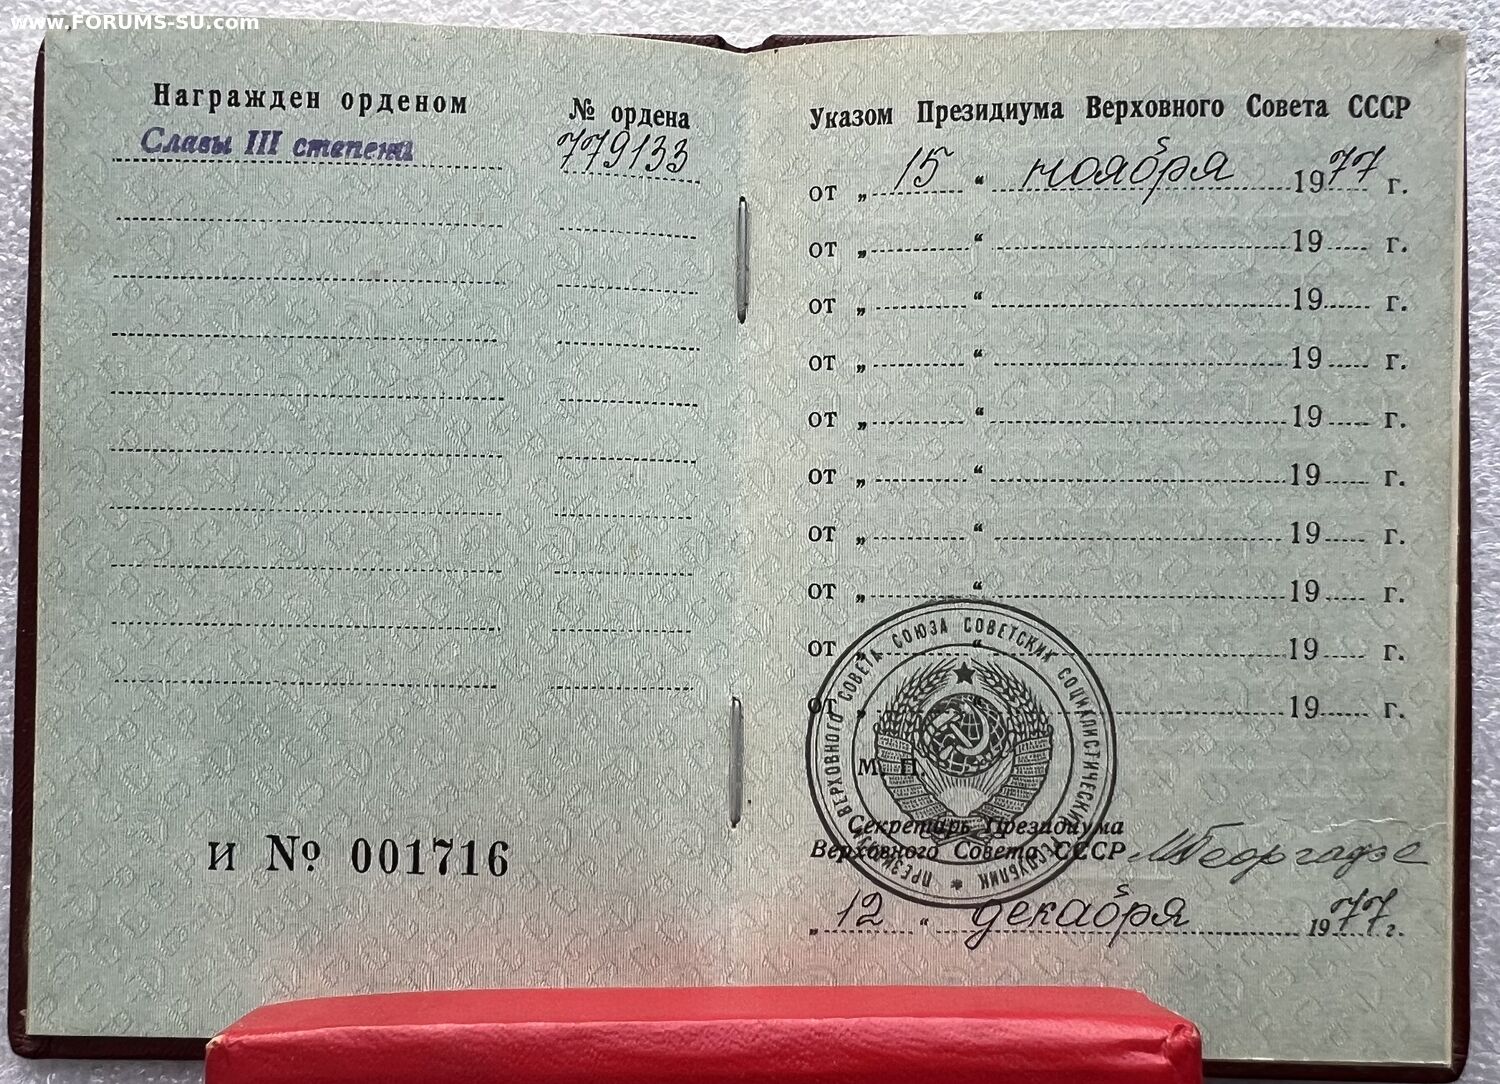 www.FORUMS-SU.com
Награжден орденом
№ ордена
Славы III степени
779133
И № 001716
Указом Президиума Верховного Совета СССР
от „ 15 “ ноября 1977 г.
от „ “ 19 г.
от „ “ 19 г.
от „ “ 19 г.
от „ “ 19 г.
от „ “ 19 г.
от „ “ 19 г.
от „ “ 19 г.
от „ “ 19 г.
от „ “ 19 г.
ПРЕЗИДИУМ ВЕРХОВНОГО СОВЕТА СОЮЗА СОВЕТСКИХ СОЦИАЛИСТИЧЕСКИХ РЕСПУБЛИК
М. П.
Секретарь Президиума
Верховного Совета СССР МГеоргадзе
„ 12 “ декабря 1977 г.